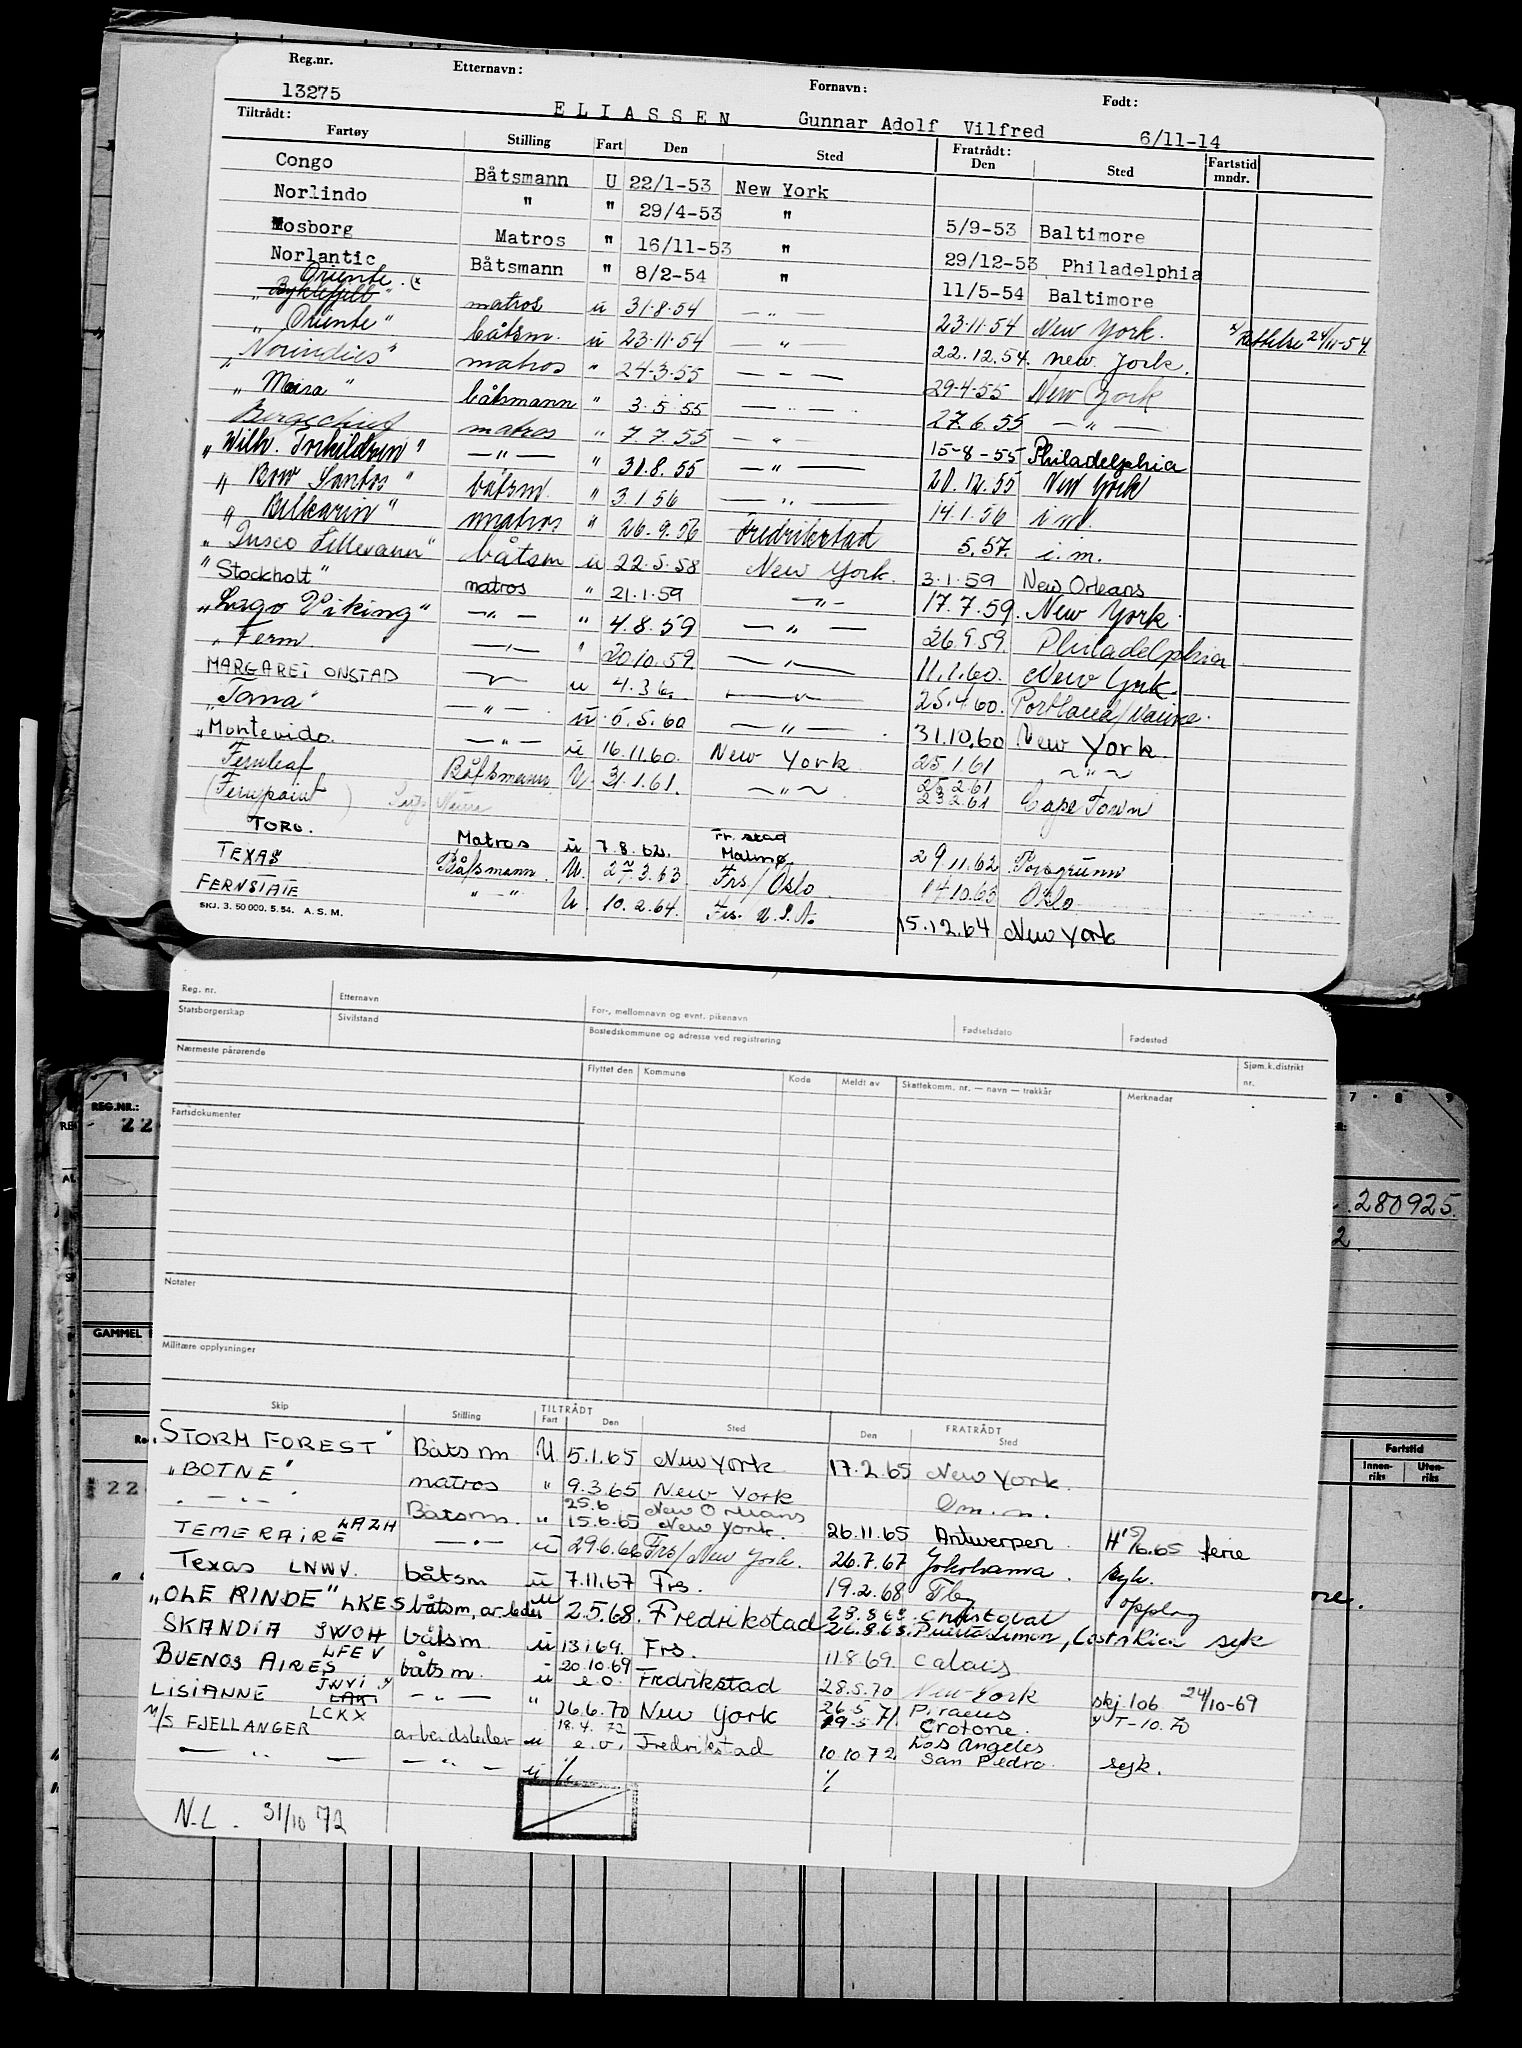 Reg.nr. Etternavn: Fornavn: Født:
13275 ELIASSEN Gunnar Adolf Vilfred 6/11-14
Tiltrådt: Fratrådt:
Fartøy Stilling Fart Den Sted Den Sted Fartstid mndr.
Congo Båtsmann U 22/1-53 New York
Norlindo " " 29/4-53 " 5/9-53 Baltimore
Mosborg Matros " 16/11-53 " 29/12-53 Philadelphia
Norlantic Båtsmann " 8/2-54 " 11/5-54 Baltimore
Oriente (x
"Byklefjell" matros u 31.8.54 — " — 23.11.54 New York. x/ Rettelse 24/11-54.
"Oriente" båtsm. u 23.11.54 — " — 22.12.54. New York.
"Norindies" matros " 24.3.55 — " — 29.4.55 New York
"Maria" båtsmann " 3.5.55 — " — 27.6.55 — " —
Bergechief matros " 7.7.55 — " 15-8-55 Philadelphia
"Wilh. Torkildsen" — " — " 31.8.55 — " — 20.12.55 New York
"Bow Santos" båtsm. " 3.1.56 — " — 14.1.56 i.m.
"Bilkarin" matros " 26.9.56 Fredrikstad 5.57. i.m.
"Dusco Lillevann" båtsm u 22.5.58 New York. 3.1.59 New Orleans
"Stockholt" matros " 21.1.59 — " — 17.7.59. New York.
"Lago Viking" — " — " 4.8.59 — " — 26.9.59. Philadelphia
"Ferm. — " — " 20.10.59. — " — 11.1.60. New York.
MARGARET ONSTAD — " — u 4.3.6. — " — 25.4.60. Portland/Maine.
"Tana" — " — u 5.5.60 — " — 31.10.60 New York.
"Montevido. — " — u 16.11.60. New York 25.1.61 — " —
Fernleaf Båtsmann U. 31.1.61. — " — 23.2.61 Cape Town
(Fernpoint)
TORO. Matros u 7.8.62. Fr.stad Malmø 29.11.62 Porsgrunn
TEXAS Båtsmann U. 27.3.63 Frs/Oslo 14.10.63 Oslo
FERNSTATE " — " U. 10.2.64. Frs. U.S.A. 15.12.64 New York
SKJ. 3. 50 000. 5.54. A.S.M.
Reg. nr. Etternavn For-, mellomnavn og evnt. pikenavn Fødselsdato Fødested
Statsborgerskap Sivilstand Bostedskommune og adresse ved registrering Sjøm.k.distrikt nr.
Nærmeste pårørende Flyttet den Kommune Kode Meldt av Skattekomm. nr. — navn — trekkår Merknader
Fartsdokumenter
Notater
Militære opplysninger
TILTRÅDT FRATRÅDT
Skip Stilling Fart Den Sted Den Sted
"STORM FOREST" Båtsm U 5.1.65 New York 17.2.65 New York.
"BOTNE" matros " 9.3.65 New York Om.m.
" — " — " Båtsm. " 25.6 15.6.65 New Orleans New York. 26.11.65 Antwerpen. H 15/6.65 ferie
TEMERAIRE LAZH — " — u 29.6.66 Frs/New York. 26.7.67 Yokohama. syk.
Texas LNWV. båtsm u 7.11.67 Frs. 19.2.68 Tbg opplag
"OLE RINDE" LKES båtsm, arbleder u 2.5.68. Fredrikstad 28.8.68. Cristobal
26.8.68. Puerto Limon, Costa Rica syk
SKANDIA JWOH båtsm u 13.1.69. Frs. 11.8.69. Calais
BUENOS AIRES LFEV båtsm. u 20.10.69 e.o. Fredrikstad 28.5.70 New York skj.106 24/10-69
LISIANNE JWVI LAKI — " — " 16.6.70 New York 26.5.71 Piraeus
19.5.71 Crotone. T-10.70
M/S FJELLANGER LCKX arbeidsleder u 18.4.72 e.o. Fredrikstad 10.10.72. Los Angeles San Pedro. syk.
— " — — " — u ⁒ ⁒
N.L. 31/10 72
REG.NR.:
22
GAMMEL
280925.
2.
22
Fartstid
Innen-riks Uten-riks